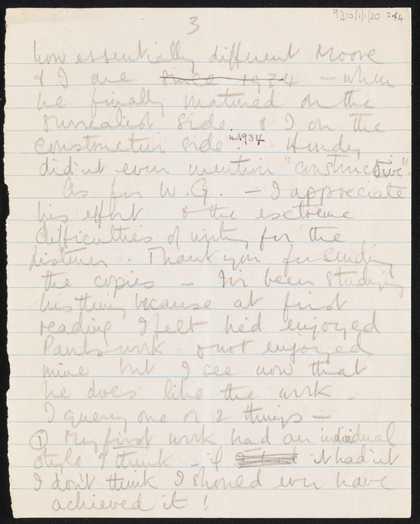 9210/1/1/20
3
how essentially different Moore
& I are since 1934 – when
he finally matured on the
surrealist side & I on the
constructive side in 1934. Hendy
didn't even mention "constructive"
As for W.G. – I appreciate
his effort & the extreme
difficulties of writing for the
listener. Thank you for sending
the copies – I've been studying
his thing because at first
reading I felt he'd enjoyed
Paul's work & not enjoyed
mine but I see now that
he does like the work.
I query one or 2 things –
① My first work had an individual
style I think – if it hadn't
I don't think I should ever have
achieved it!